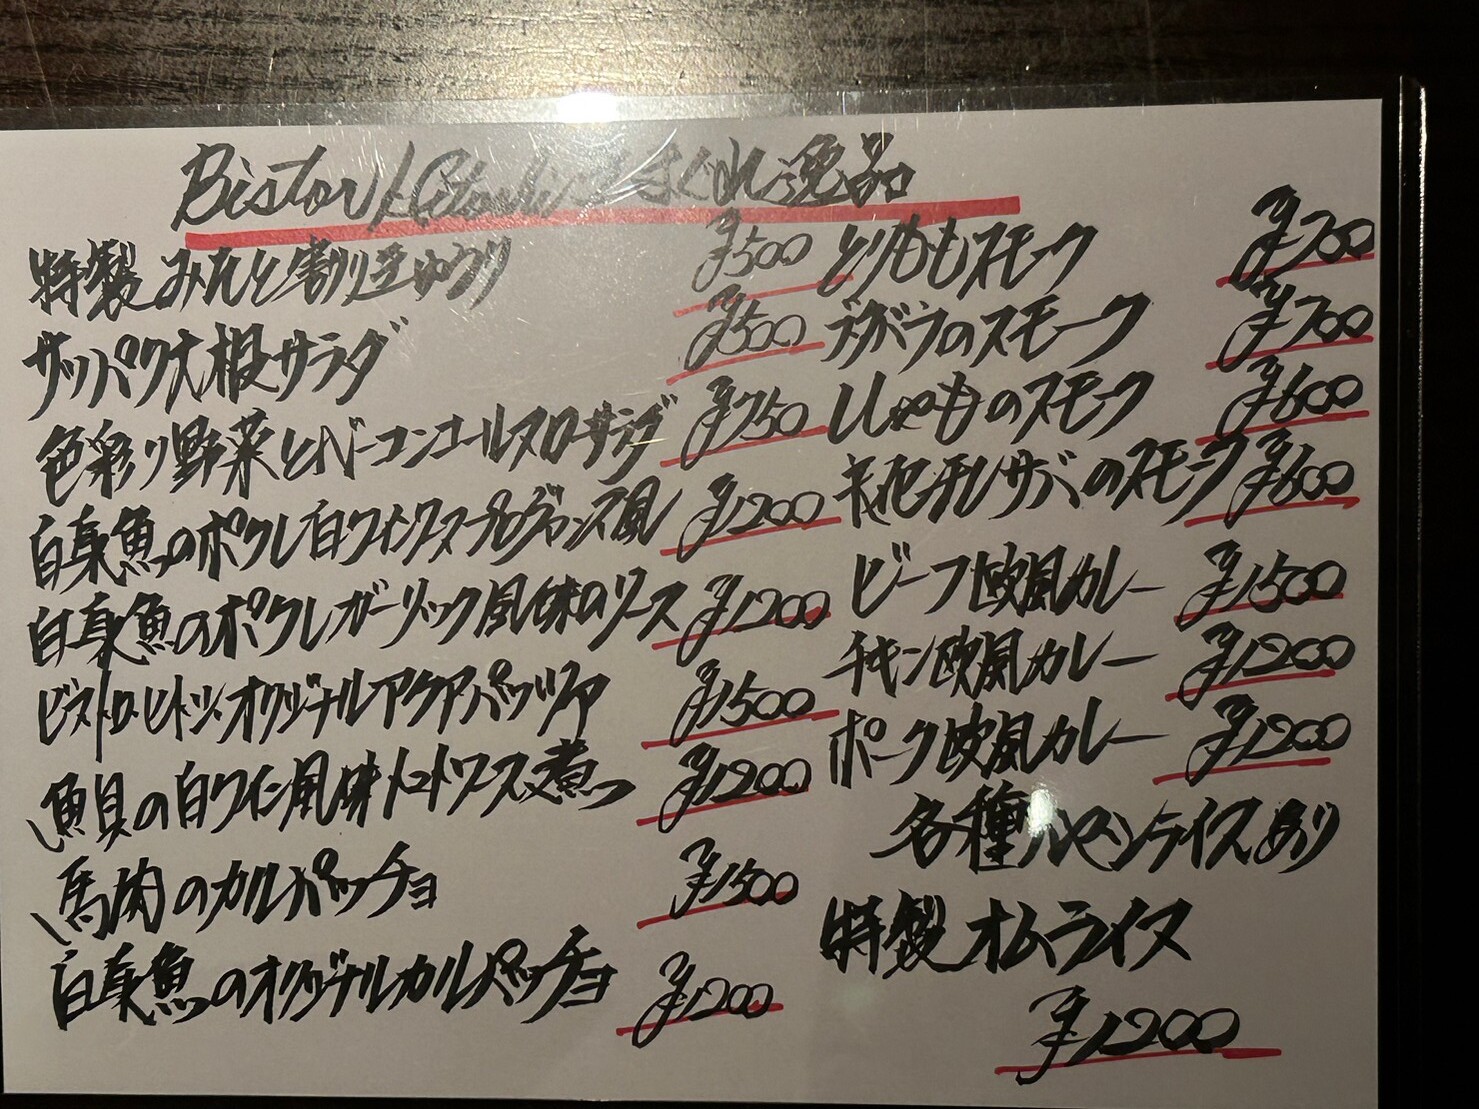 Bistor きまぐれ逸品
特製みたと割りきゅうり ¥500
サッパリ大根サラダ ¥500
色彩り野菜とベーコンコールスローサラダ ¥750
白身魚のポワレ白ワインソースプロヴァンス風 ¥1200
白身魚のポワレガーリック風味のソース ¥1200
ビストロ・ヒトツ・オリジナルアクアパッツァ ¥1500
魚貝の白ワイン風味トマトソース煮 ¥1200
馬肉のカルパッチョ ¥1500
白身魚のオリジナルカルパッチョ ¥1200
とりももスモーク ¥700
ブタバラのスモーク ¥700
ししゃものスモーク ¥600
サバのスモーク ¥600
ビーフ欧風カレー ¥1500
チキン欧風カレー ¥1200
ポーク欧風カレー ¥1200
各種ハーフライスあり
特製オムライス
¥1200